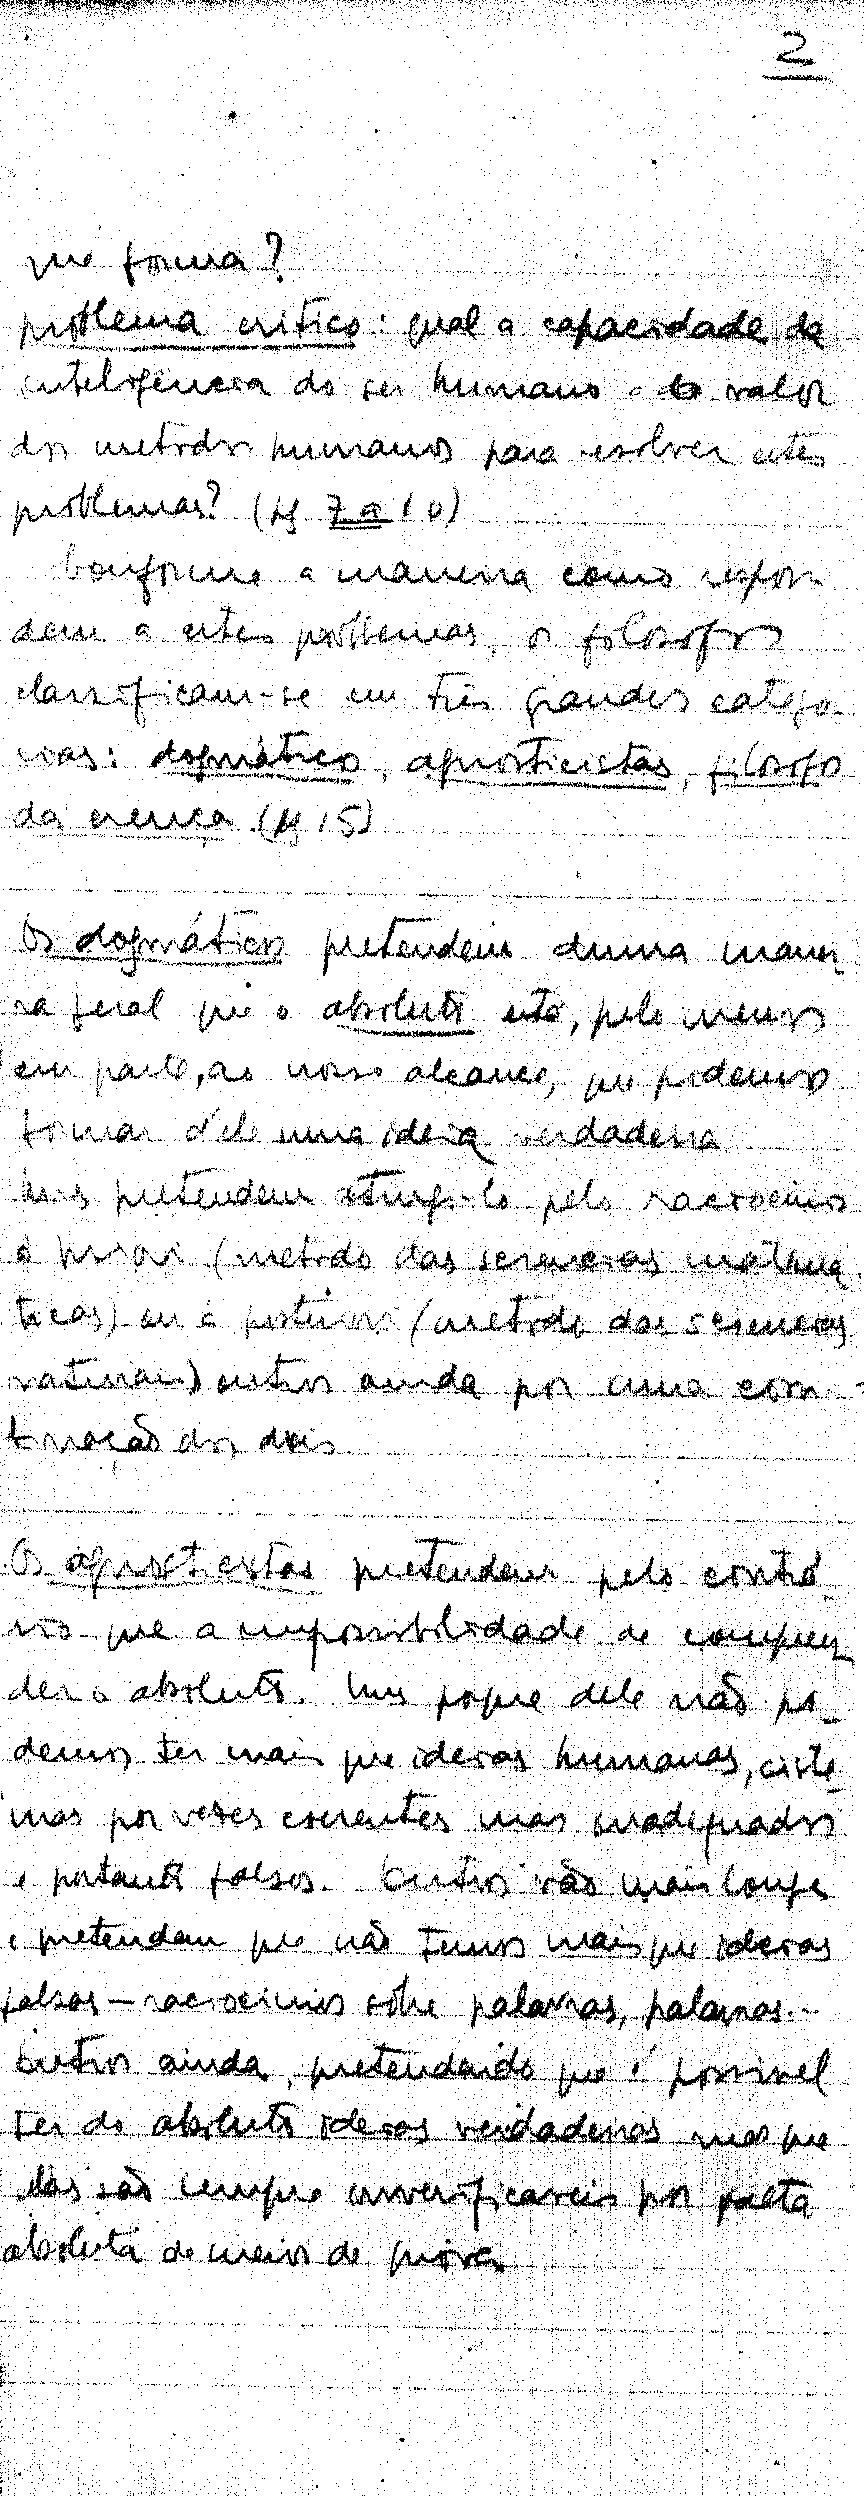 2
que forma?
problema critico: qual a capacidade da
inteligencia do ser humano e o valor
dos metodos humanos para resolver estes
problemas? (pg 7 a 10)
Conforme a maneira como respon-
dem a estes problemas, os filosofos
classificam-se em três grandes catego-
rias: dogmáticos, agnosticistas, filosofos
da crença (pg 15)
Os dogmáticos pretendem duma manei-
ra geral que o absoluto está, pelo menos
em parte, ao nosso alcance, que podemos
formar d'ele uma ideia verdadeira
Uns pretendem atingi-lo pelo raciocinio
á priori (metodo das sciencias matemá-
ticas) ou á posteriori (metodo das sciencias
naturais) outros ainda por uma com-
binação dos dois
Os agnosticistas pretendem pelo contrá-
rio que a impossibilidade de compreen-
der o absoluto. Uns porque dele não po-
demos ter mais que ideias humanas, siste-
mas por vezes coerentes mas inadequados
e portanto falsos. Outros vão mais longe
e pretendem que não temos mais que ideias
falsas — raciocinios sobre palavras, palavras. -
Outros ainda, pretendendo que é possivel
ter do absoluto ideias verdadeiras mas que
elas são sempre inverificaveis por falta
absoluta de meios de prova